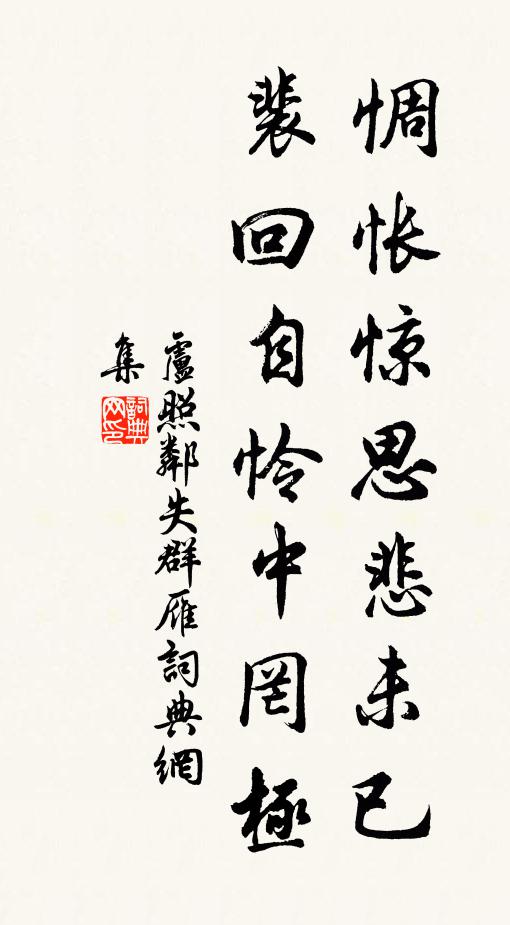 惆怅惊思悲未已
裴回自怜中罔極
盧照鄰失群雁詞典網
集
詞典
网印